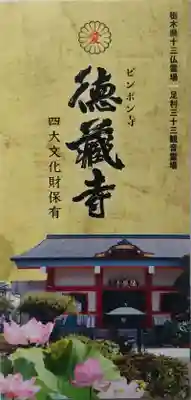 栃木県十三仏霊場 足利三十三観音霊場
ピンポン寺
德藏寺
四大文化財保有